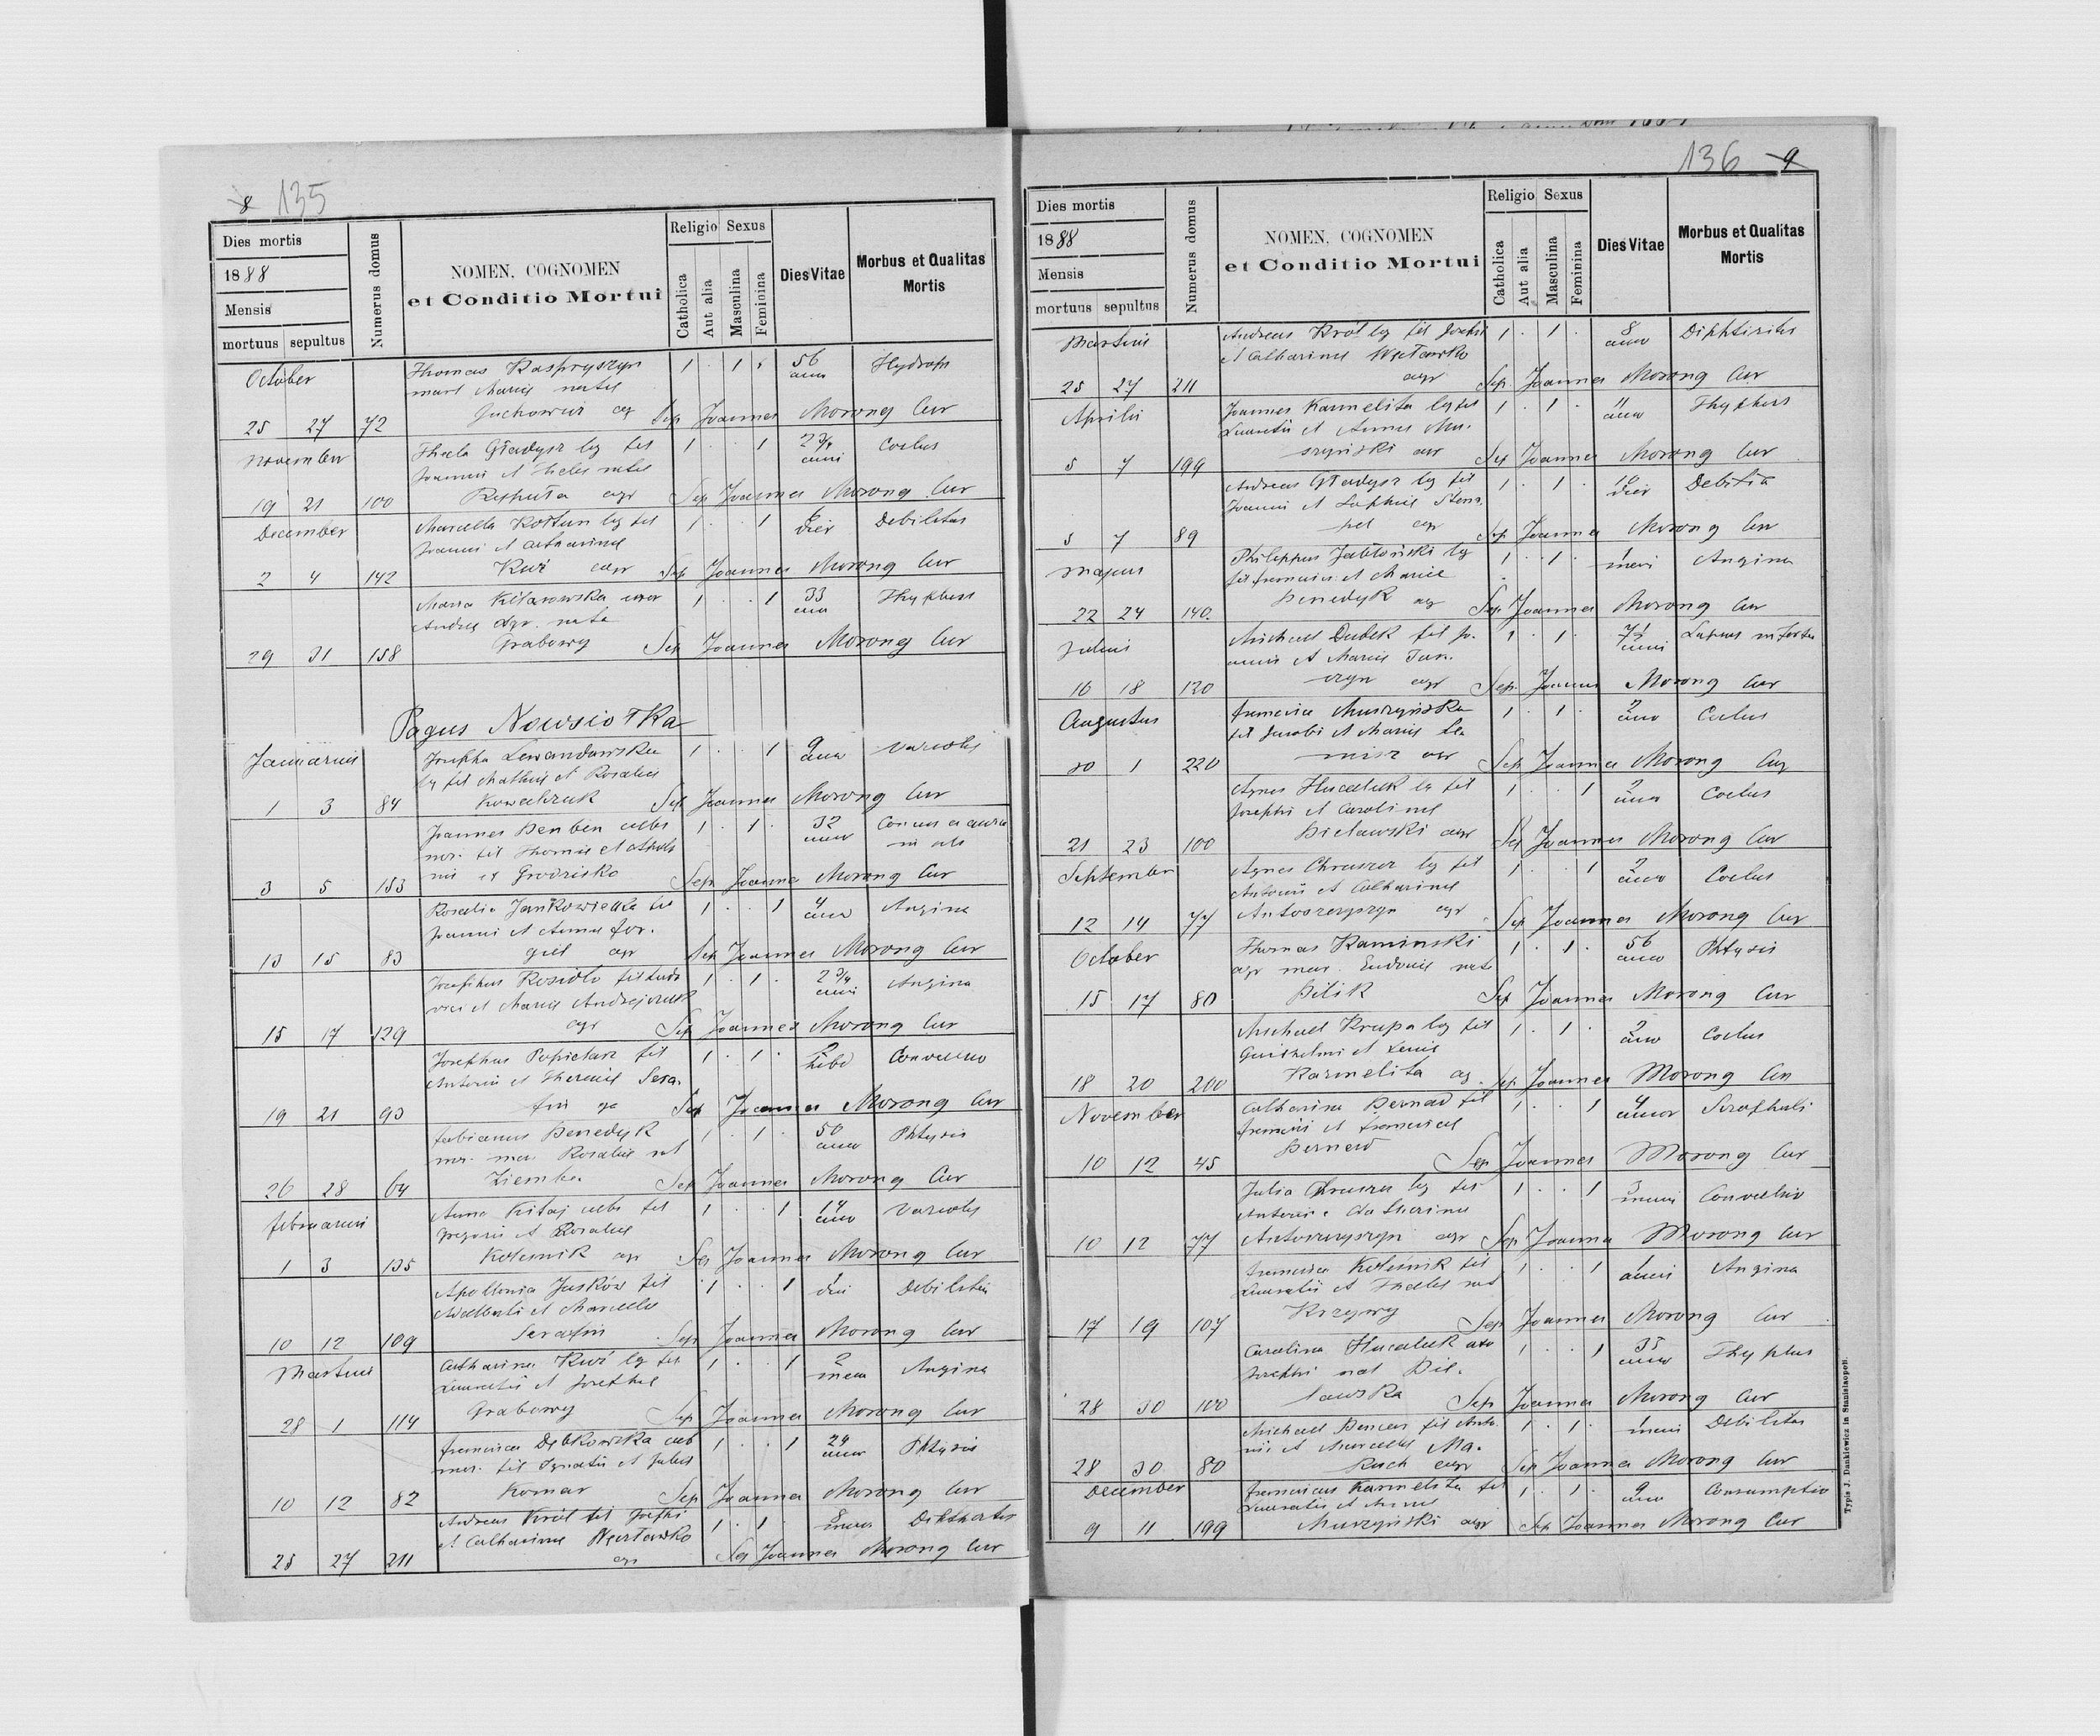 8 135
Dies mortis
1888
Mensis
mortuus sepultus
Numerus domus
NOMEN, COGNOMEN
et Conditio Mortui
Religio Sexus
Catholica
Aut alia
Masculina
Feminina
Dies Vitae
Morbus et Qualitas
Mortis
October
Thomas Kaspryszyn 1 . 1 . 56 Hydrops
mart Mariae natae anno
25 27 72 ag Sep Joannes Morong Cur
November
Thecla Gładysz lg fil 1 . . 1 2 3/4 Coclus
Joannis et Theclae natae anni
19 21 100 Repiuta agr Sep Joannes Morong Cur
December
Marcella Kołtun lg fil 1 . . 1 6 Debilitas
Joannis et Catharinae dies
2 4 142 Kuź agr Sep Joannes Morong Cur
Maria Kitarowska uxor 1 . . 1 33 Thyphus
Andreae agr. nata ann
29 31 158 Grabowy Sep Joannes Morong Cur
Pagus Nowsiołka
Januarius
Josepha Lewandowska 1 . . 1 9 Variolis
lg fil Mathiae et Rosaliae anno
1 3 84 Kowalczuk Sep Joannes Morong Cur
Joannes Benben caelebs 1 . 1 . 32
fil Thomae et anno
3 5 153 Grodzisko Sep Joannes Morong Cur
Rosalia Jankowiecka fil 1 . . 1 4 Angina
Joannis et Annae For- anno
13 15 83 giel agr Sep Joannes Morong Cur
Josephus Rosidło fil Ludo 1 . 1 . 2 3/4 Angina
vici et Mariae Andrejczuk anni
15 17 129 agr Sep Joannes Morong Cur
Josephus Popielarz fil 1 . 1 . 2 Convulsio
Antonii et Theresiae Sera- hebd
19 21 93 fin ag Sep Joannes Morong Cur
Fabianus Benedyk 1 . 1 . 50 Phtysis
mar. Rosaliae nat anno
26 28 64 Ziemba Sep Joannes Morong Cur
Februarius
Anna Kitaj caelebs fil 1 . . 1 14 Variolis
Gregorii et Rosaliae anno
1 3 135 Kolesnik agr Sep Joannes Morong Cur
Apollonia Juśków fil 1 . . 1 1 Debilitas
Adalberti et Marcella die
10 12 109 Serafin Sep Joannes Morong Cur
Martius
Catharina Kuź lg fil 1 . . 1 2 Angina
Laurentii et Josephae mens
28 1 114 Grabowy Sep Joannes Morong Cur
Francisca Dębkowska caeb 1 . . 1 24 Phtysis
fil Ignatii et Juliae anno
10 12 82 Komar Sep Joannes Morong Cur
Andreas Król fil Josephi 1 . 1 . 8
et Catharinae Węcławska
25 27 211 agr Sep Joannes Morong Cur
136 9
Dies mortis
1888
Mensis
mortuus sepultus
Numerus domus
NOMEN, COGNOMEN
et Conditio Mortui
Religio Sexus
Catholica
Aut alia
Masculina
Feminina
Dies Vitae
Morbus et Qualitas
Mortis
Martius
Andreas Król lg fil Josephi 1 . 1 . 8 Diphtiritis
et Catharinae Węcławska anno
25 27 211 agr Sep Joannes Morong Cur
Aprilis
Joannes Karmelita lg fil 1 . 1 . 11 Thyphus
Laurentii et Annae Mu- anno
5 7 199 szyński agr Sep Joannes Morong Cur
Andreas Gładysz lg fil 1 . 1 . 18
Joannis et Sophiae Stem- dies
5 7 89 pel agr Sep Joannes Morong Cur
Majus
Philippus Jabłoński lg 1 . 1 . 1 Angina
fil Francisci et Mariae mens
22 24 140. Benedyk ag Sep Joannes Morong Cur
Julius
Michael Dudek fil Jo- 1 . 1 . 7 1/2
annis et Mariae Jan- anni
16 18 120 czyn agr Sep Joannes Morong Cur
Augustus
Francisca Muszyńska 1 . 1 . 2 Coclus
fil Jacobi et Mariae anno
30 1 220 agr Sep Joannes Morong Cur
Agnes Hucaluk lg fil 1 . . 1 2 Coclus
Josephi et Carolinae anno
21 23 100 Bielawski agr Sep Joannes Morong Cur
September
Agnes Chruszcz lg fil 1 . . 1 2 Coclus
Antonii et Catharinae anno
12 14 77 Antoszczyszyn agr Sep Joannes Morong Cur
October
Thomas Kaminski 1 . 1 . 56 Phtysis
agr mar. Eudoxiae nata anno
15 17 80 Bilik Sep Joannes Morong Cur
Michael Krupa lg fil 1 . 1 . 2 Coclus
Guilhelmi et anno
18 20 200 Karmelita ag. Sep Joannes Morong Cur
November
Catharina Bernad fil 1 . . 1 4
Francisci et Franciscae annor
10 12 45 Bernard Sep Joannes Morong Cur
Julia Chruszcz lg fil 1 . . 1 3 Convulsio
Antonii et Catherinae mens
10 12 77 Antoszczyszyn agr Sep Joannes Morong Cur
Francisca Kolésnik fil 1 . . 1 1 Angina
Laurentii et Theclae nat
17 19 107 Krzywy Sep Joannes Morong Cur
Carolina Hucaluk uxo 1 . . 1 35 Thyphus
Josephi nat Bie- anno
28 30 100 lawska Sep Joannes Morong Cur
Michael fil Anto 1 . 1 . 1 Debilitas
nii et Marcellae Ma- mens
28 30 80 ruch agr Sep Joannes Morong Cur
December
Franciscus Karmelita fil 1 . 1 . 9 Consumptio
Laurentii et Annae anno
9 11 199 Muszyński agr Sep Joannes Morong Cur
Typis J. Dankiewicz in Stanislaopoli.